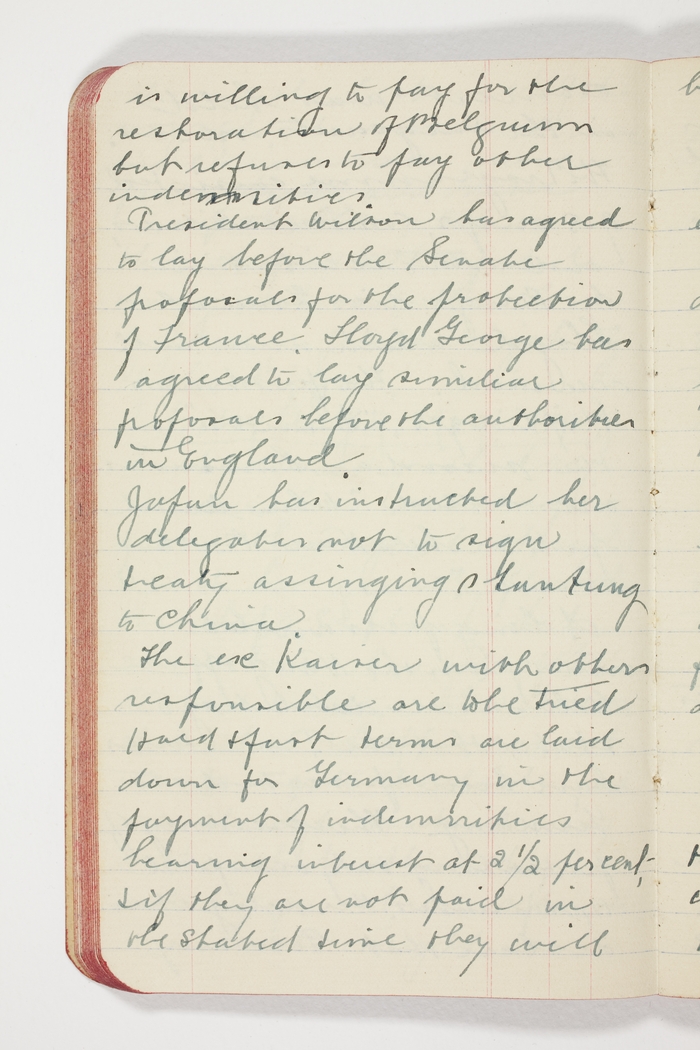 is willing to pay for the
restoration of Belguium
but refuses to pay other
indemnities.
President Wilson has agreed
to lay before the Senate
proposals for the protection
of France. Lloyd George has
agreed to lay similiar
proposals before the authorities
in England
Japan has instructed her
delegates not to sign
treaty assinging Shantung
to China.
The ex Kaiser with others
responsible are to be tried
Hard & fast terms are laid
down for Germany in the
payment of indemnities
bearing interest at 2 1/2 per cent,
& if they are not paid in
the stated time they will